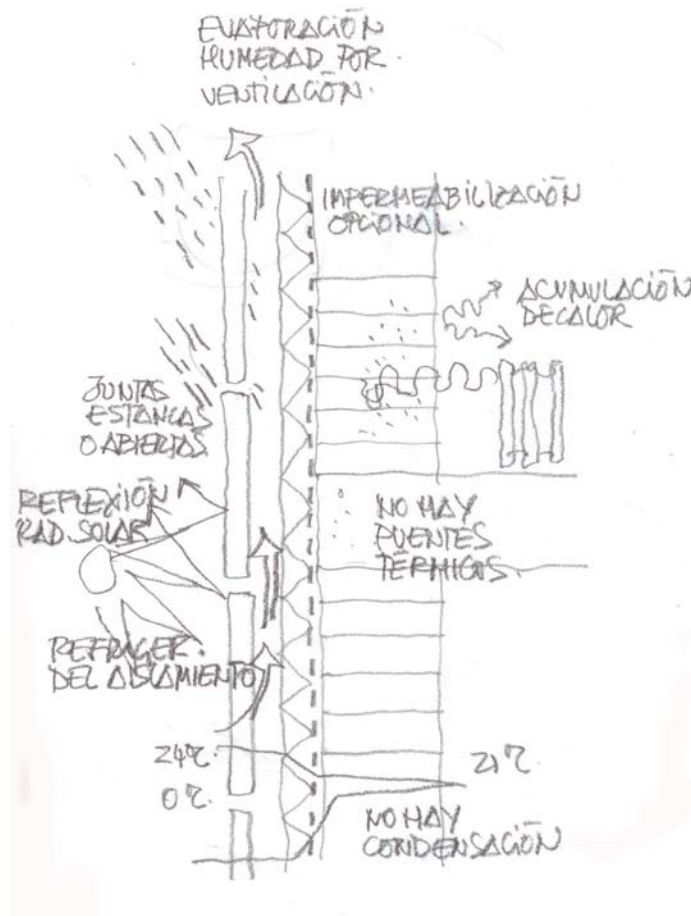 EVAPORACIÓN
HUMEDAD POR
VENTILACIÓN.
IMPERMEABILIZACIÓN
OPCIONAL.
ACUMULACIÓN
DE CALOR
JUNTAS
ESTANCAS
O ABIERTAS.
REFLEXIÓN
RAD. SOLAR
NO HAY
PUENTES
TÉRMICOS.
REFRIGER.
DEL AISLAMIENTO
24ºC.
21ºC
0ºC.
NO HAY
CONDENSACIÓN